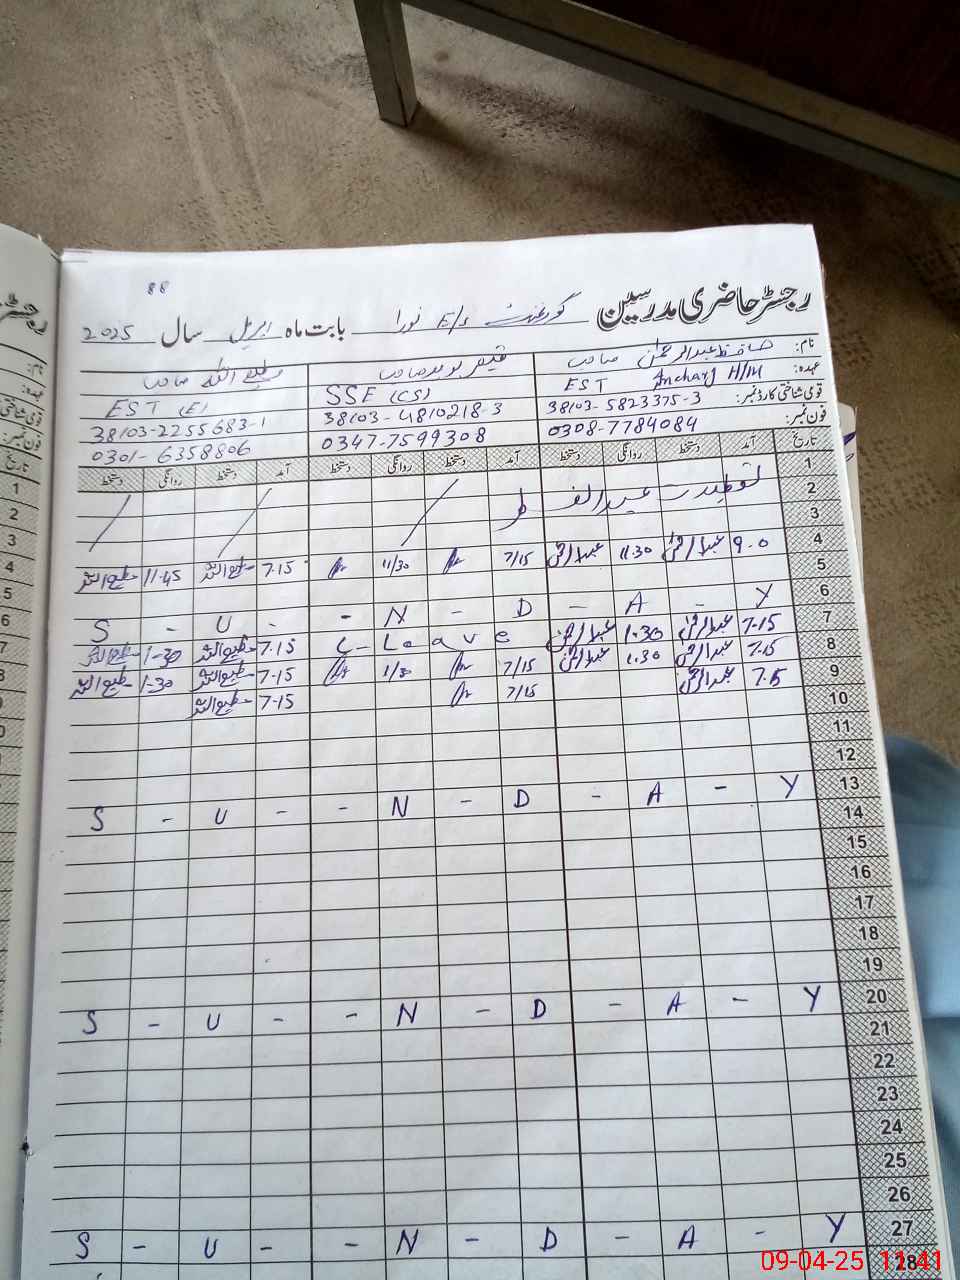 88
رجسٹر حاضری مدرسین گورنمنٹ E/s نورا بابت ماہ اپریل سال 2025
نام: حافظ عبدالرحمن صاحب قیصر نوید صاحب مطیع اللہ صاحب
عہدہ: EST Incharg H/M SSE (CS) EST (E)
قومی شناختی کارڈ نمبر: 38103-5823375-3 38103-4810218-3 38103-2255683-1
فون نمبر: 0308-7784084 0347-7599308 0301-6358806
تاریخ آمد دستخط روانگی دستخط آمد دستخط روانگی دستخط آمد دستخط روانگی دستخط
1
2 تعطیلات عیدالفطر
3
4
5 9.0 عبدالرحمن 11.30 عبدالرحمن 7/15 11/30 7.15 مطیع اللہ 11.45 مطیع اللہ
6 S - U - - N - D - A - Y
7 7.15 عبدالرحمن 1.30 عبدالرحمن C-Leave 7.15 مطیع اللہ 1.30 مطیع اللہ
8 7.15 عبدالرحمن 1.30 عبدالرحمن 7/15 1/30 7.15 مطیع اللہ 1.30 مطیع اللہ
9 7.15 عبدالرحمن 7/15 7.15 مطیع اللہ
10
11
12
13 S - U - - N - D - A - Y
14
15
16
17
18
19
20 S - U - - N - D - A - Y
21
22
23
24
25
26
27 S - U - - N - D - A - Y
28
09-04-25 11:41